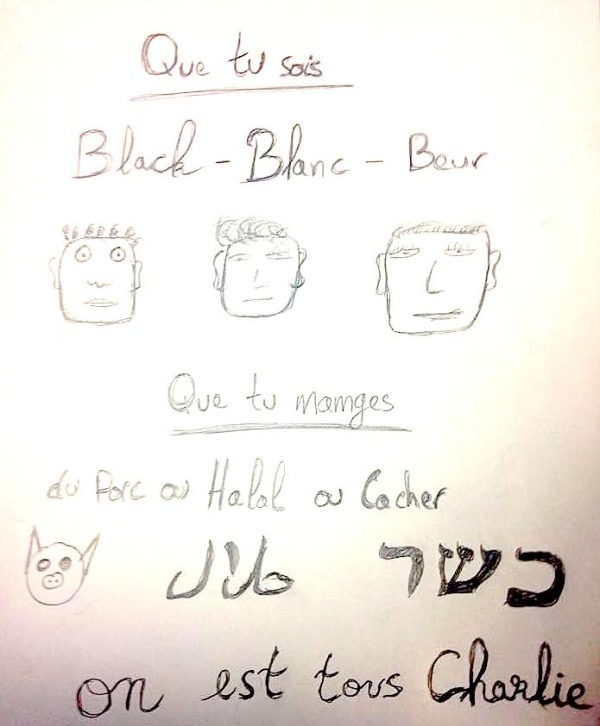 Que tu sois
Black - Blanc - Beur
Que tu mamges
du Porc ou Halal ou Cacher
حلال כשר
on est tous Charlie